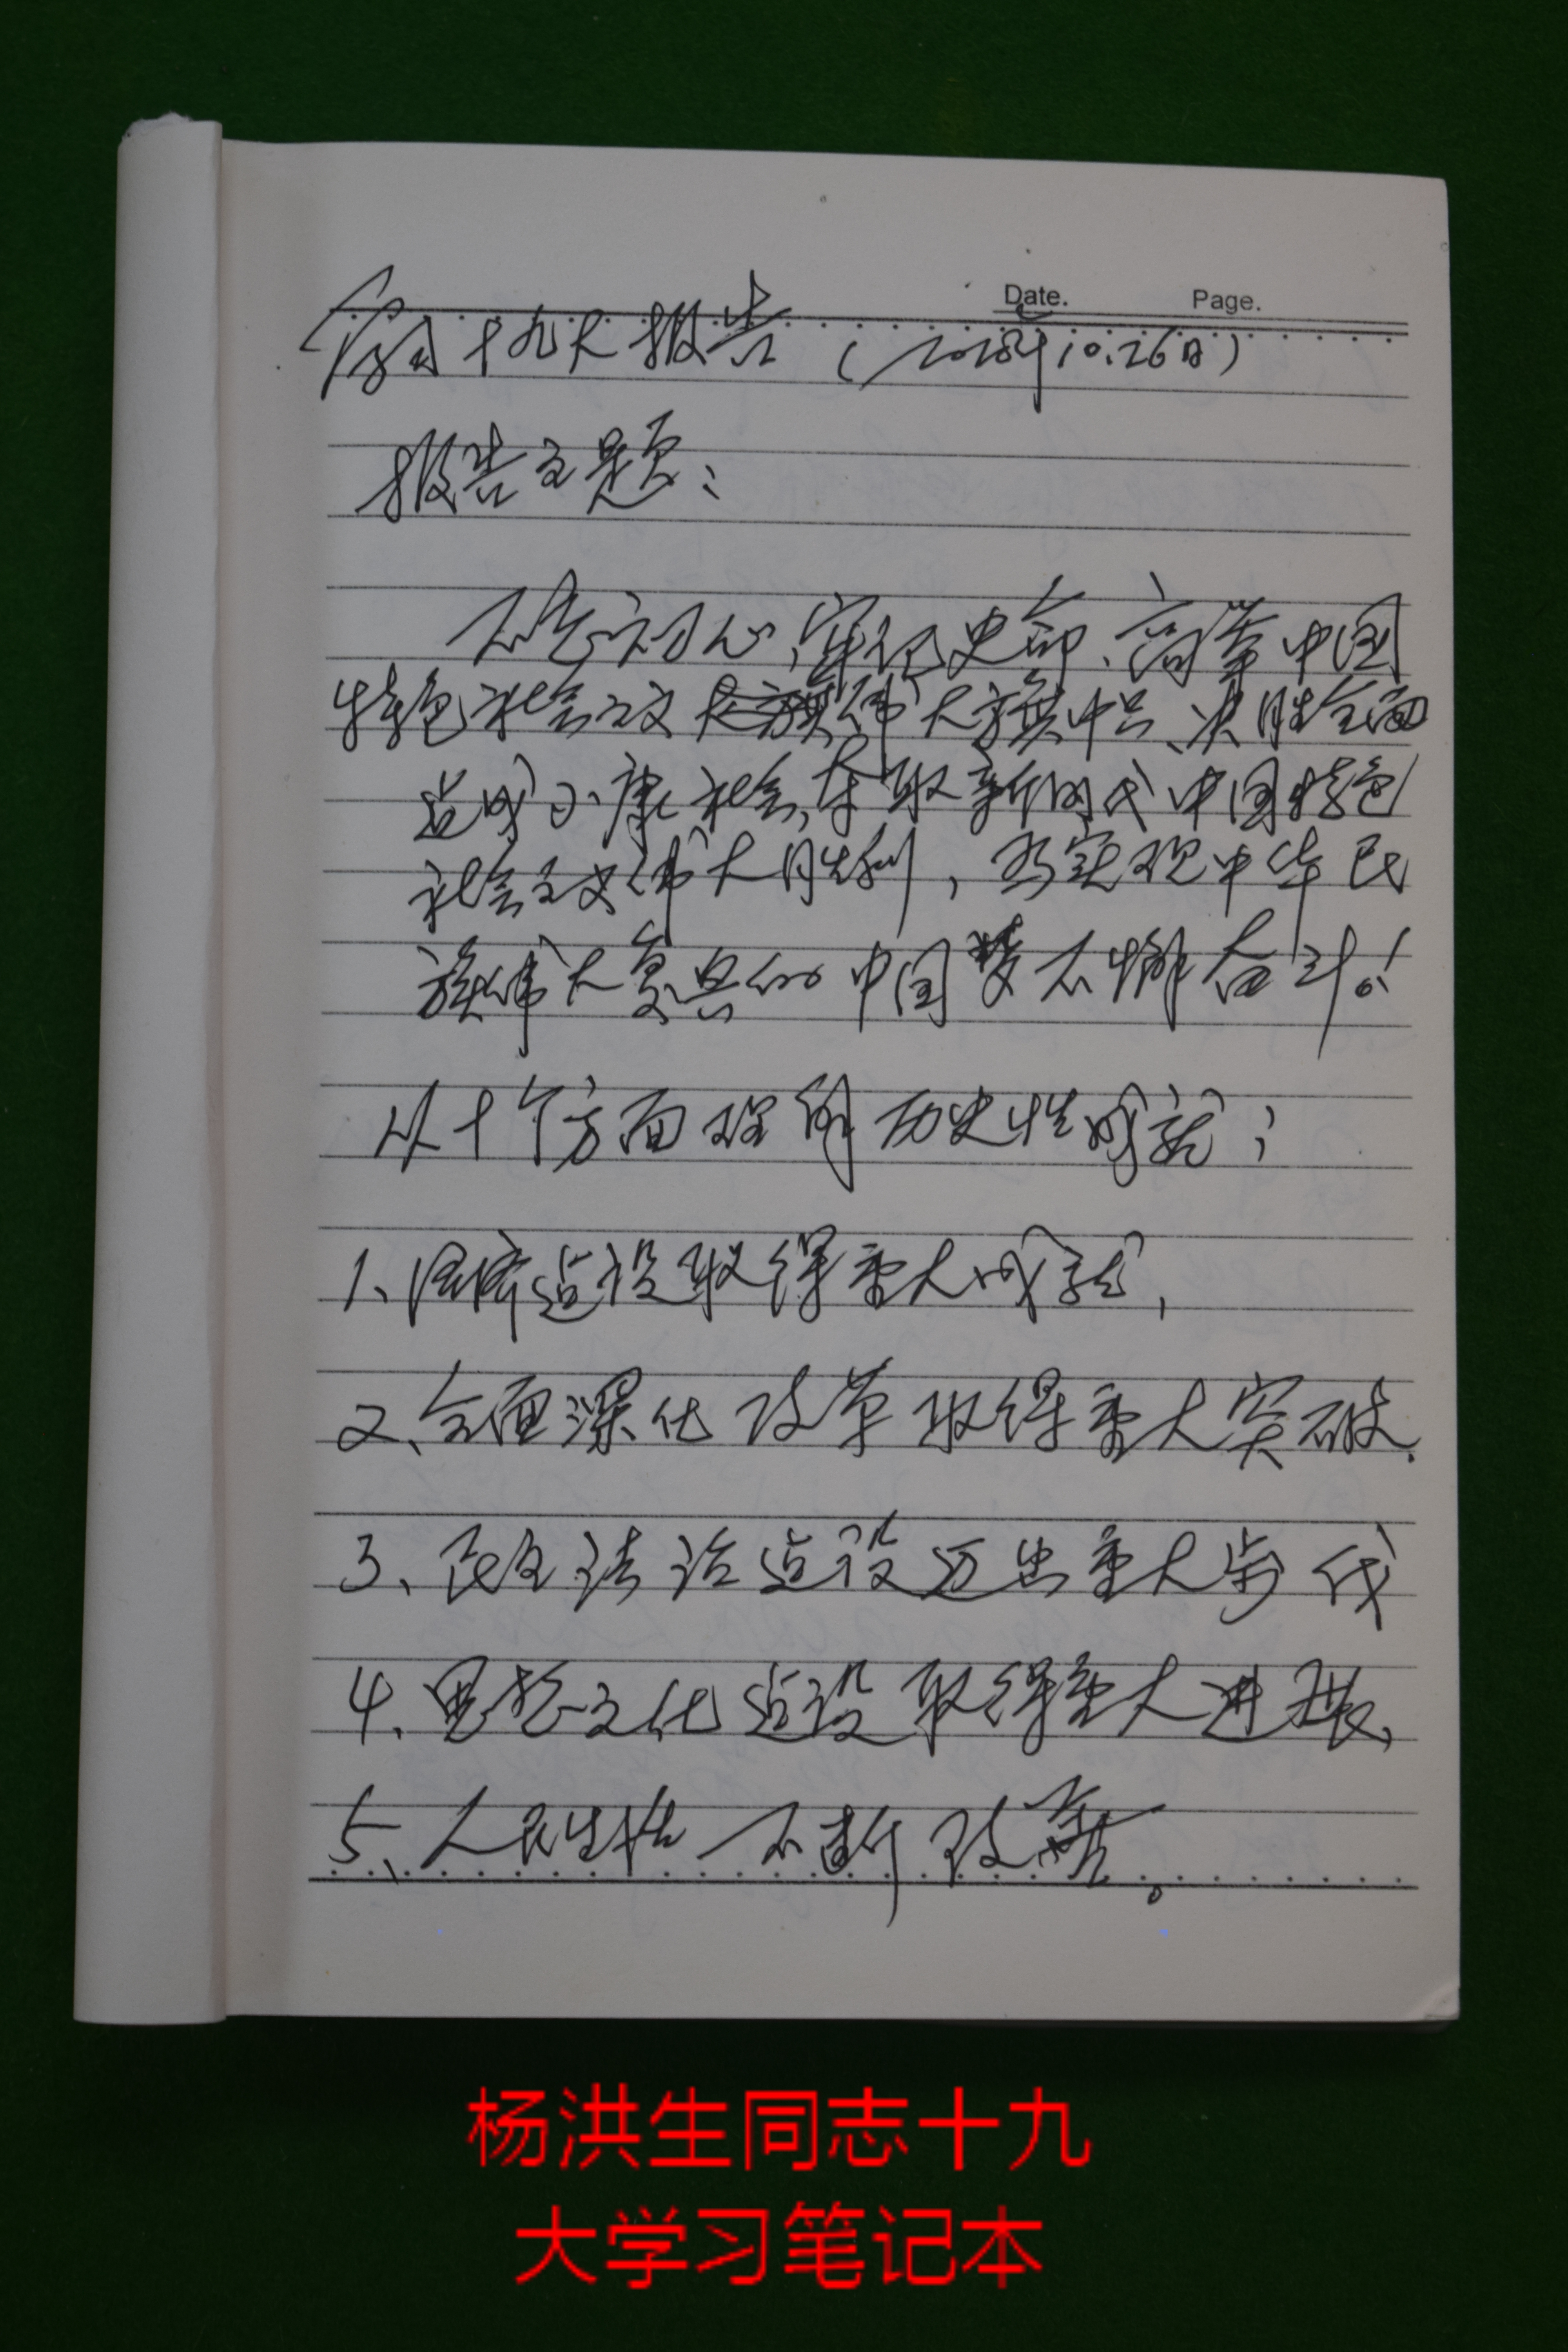 Date. Page.
十九大报告（2018年10.26日）
报告主题：
不忘初心，牢记使命，高举中国
特色社会主义伟大旗帜，决胜全面
建成小康社会，夺取新时代中国特色
社会主义伟大胜利，为实现中华民
族伟大复兴的中国梦不懈奋斗！
从十个方面理解历史性成就；
1、经济建设取得重大成就，
2、全面深化改革取得重大突破.
3、民主法治建设迈出重大步伐
4、思想文化建设取得重大进展、
5、人民生活不断改善。
杨洪生同志十九
大学习笔记本